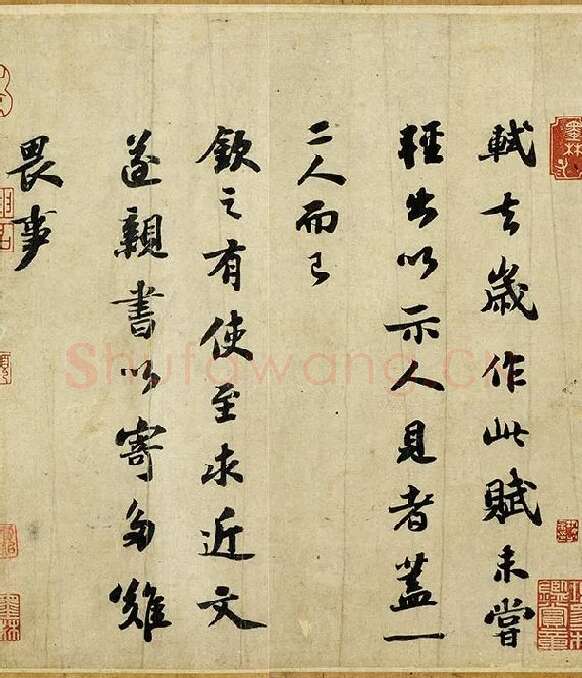 軾去歲作此賦未嘗
輕出以示人見者蓋一
二人而已
欽之有使至求近文
遂親書以寄多難
畏事
Shufawang.cn